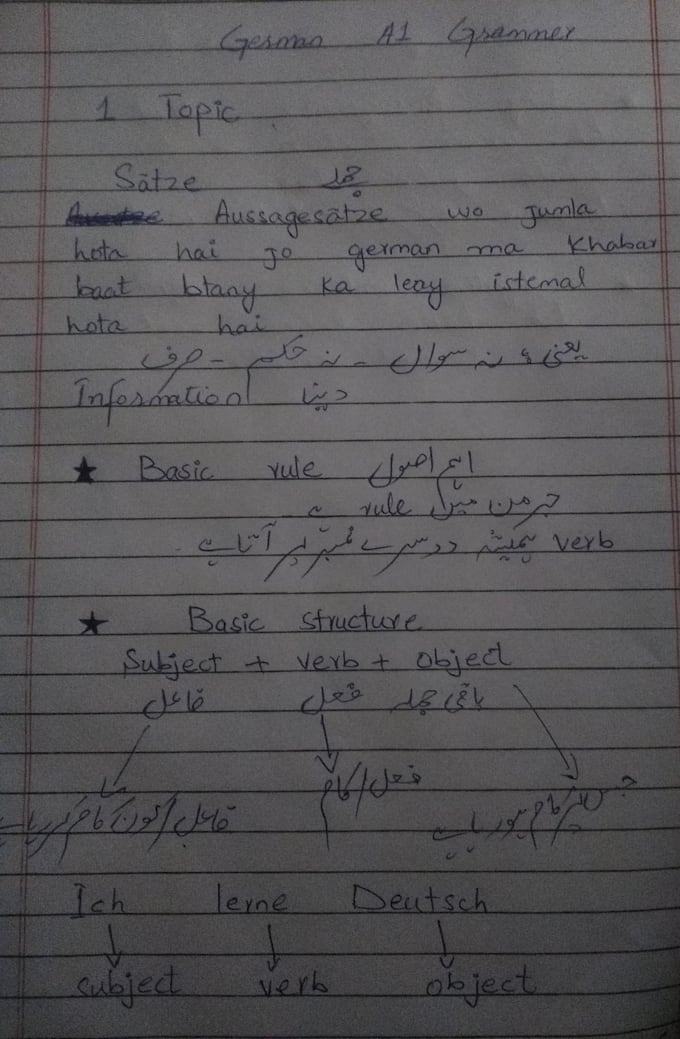 German A1 Grammer
1 Topic
Sätze جملہ
Aussagesätze wo jumla
hota hai jo german ma Khabar
baat btany ka leay istemal
hota hai
یعنی، نہ سوال - نہ حکم - صرف
Information دینا
★ Basic rule اہم اصول
جرمن میں rule ہے
verb ہمیشہ دوسرے نمبر پر آتا ہے
★ Basic structure
Subject + verb + object
فاعل فعل باقی جملہ
فاعل/کون کام کر رہا ہے فعل/کام جس پر کام ہو رہا ہے
Ich lerne Deutsch
subject verb object